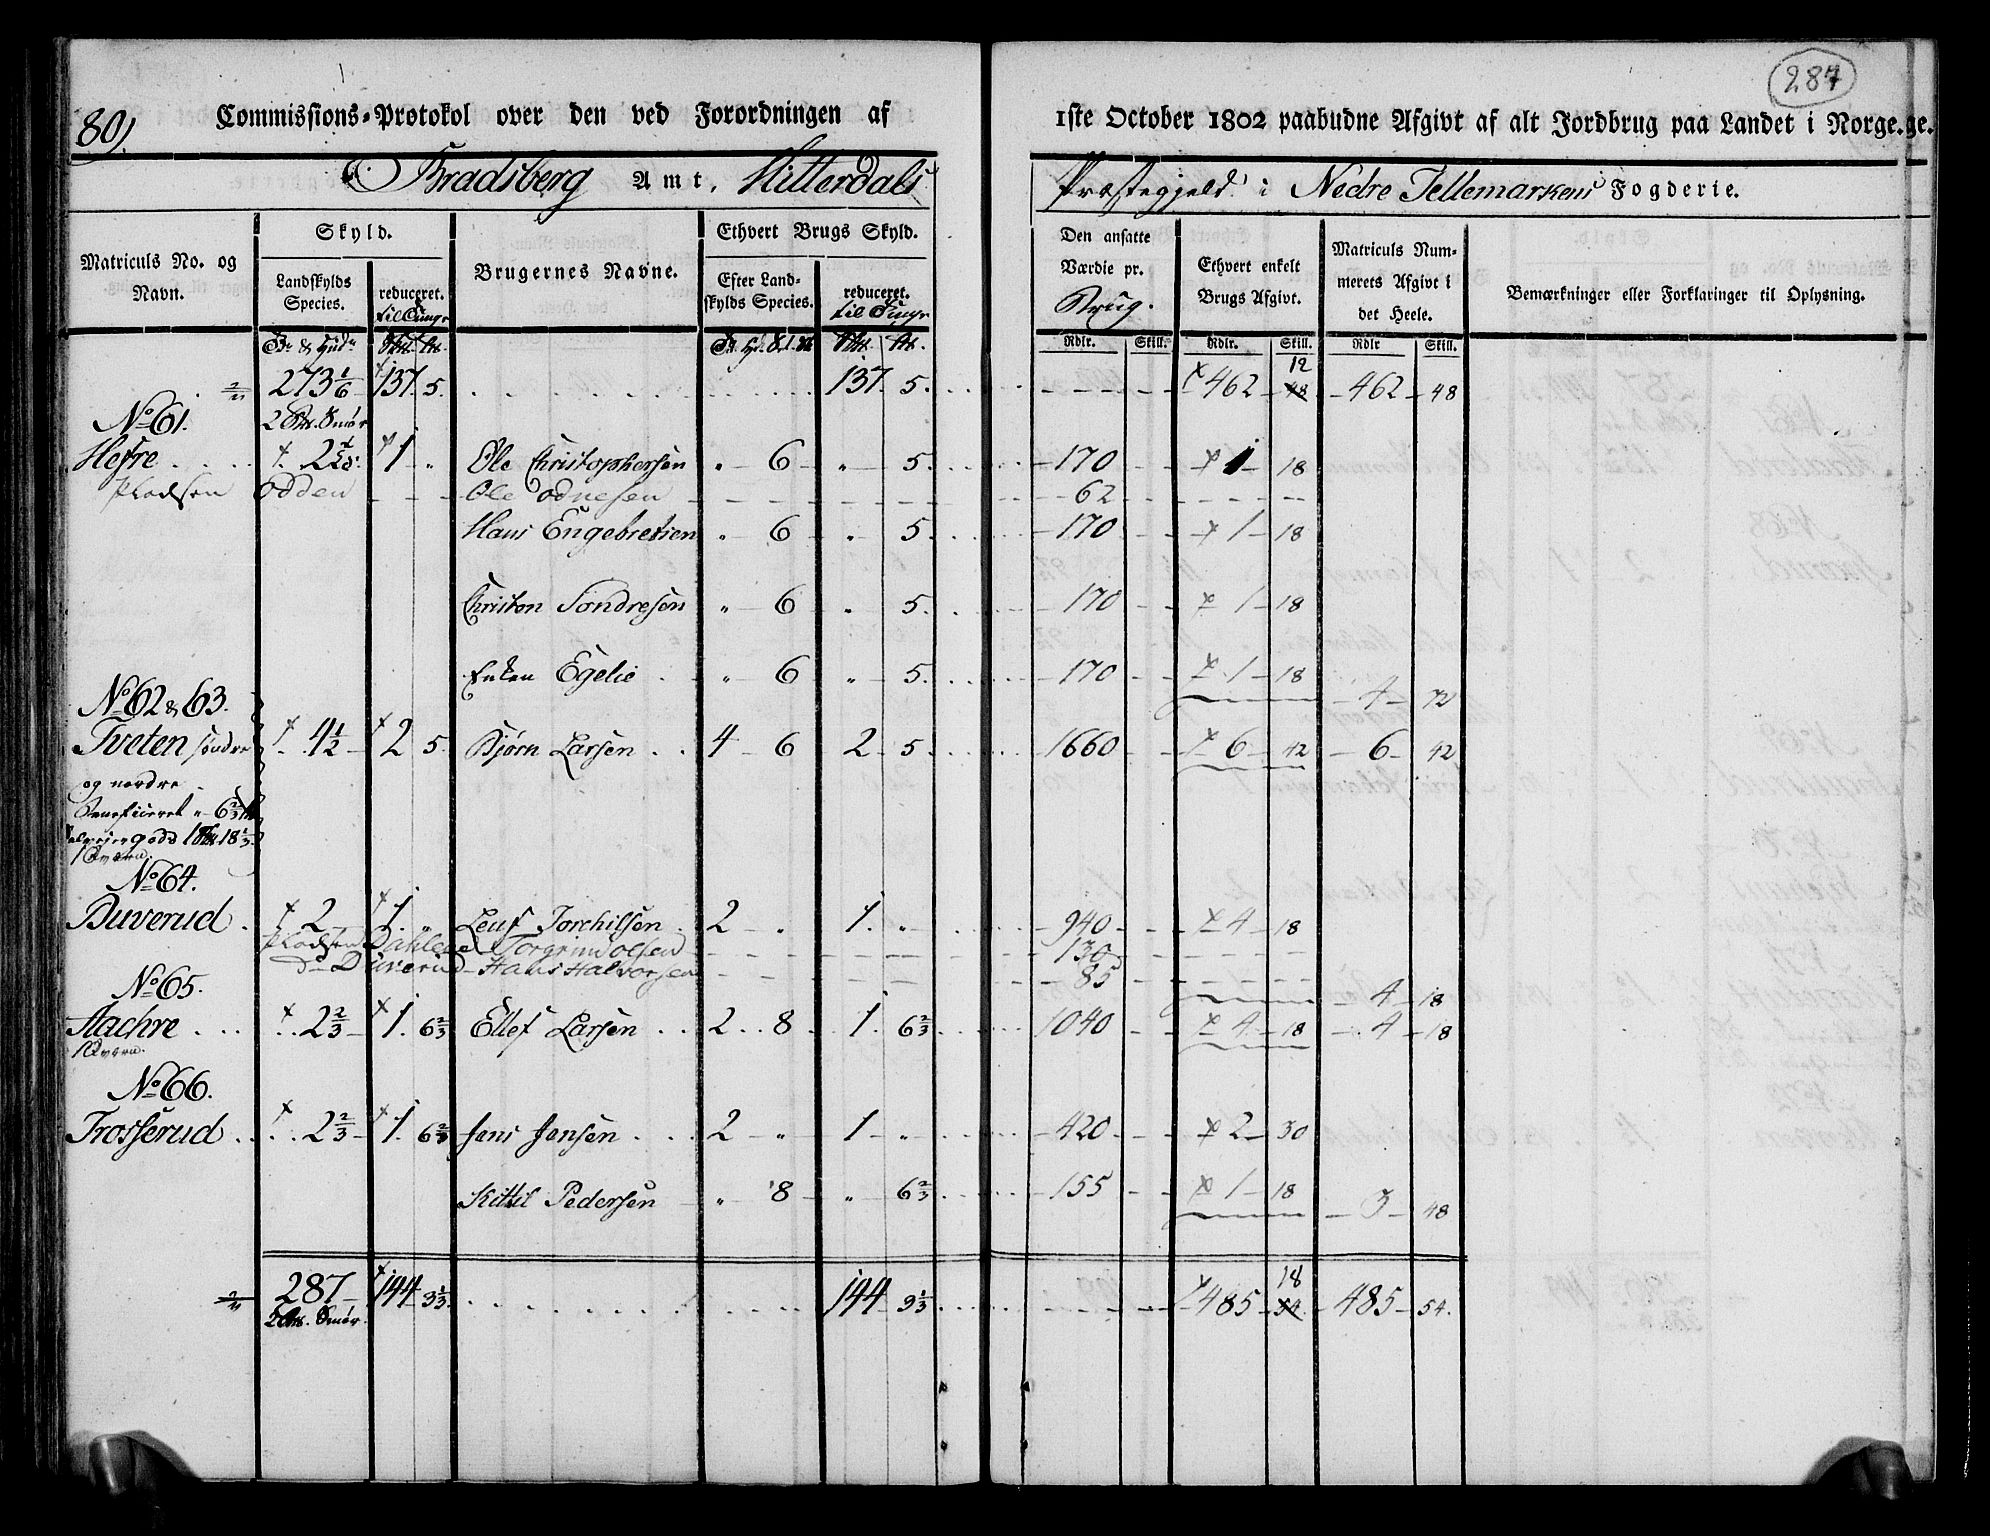 80).
Commissions-Protokol over den ved Forordningen af 1ste October 1802 paabudne Afgivt af alt Jordbrug paa Landet i Norge.
287
Bradsberg Amt, Hitterdals Præstegjeld i Nedre Tellemarkens Fogderie.
Matriculs No. og Navn.
Skyld.
Landskylds Species.
reduceret. til Tunge
Brugernes Navne.
Ethvert Brugs Skyld.
Efter Landskylds Species.
reduceret. til Tunge
Den ansatte Værdie pr. Brug.
Ethvert enkelt Brugs Afgivt.
Matriculs Nummerets Afgivt i det Heele.
Bemærkninger eller Forklaringer til Oplysning.
Rdlr. Skill. Rdlr. Skill. Rdlr Skill.
273 1/6 137. 5. 137. 5. 462 12 48 462 48
No 61. Smør
Hefre 1 " Ole Christophersen " 6 " 5. 170 1 18
Pladsen Odden Ole Odnesen 62
Hans Engebretsen " 6 " 5. 170 1 18
Christen Sondresen " 6 " 5. 170 1 18
Enken Egelie " 6 " 5. 170 1 18
4 72
No 62 & 63.
Tveten søndre 4 1/2 2 5. Bjørn Larsen 4 6 2 5. 1660 6 42 6 42
og nordre
Beneficieret " 6 2/3
1 Qværn.
No 64.
Buverud 2 1. " Leuf Torchilsen 2 " 1. " 940 4 18
Pladsen Dahlen Torgrim Olsen 130
do Buverud Hans Halvorsen 85
4 18
No 65.
Aachre 2 2/3 1. 6 2/3 Ellef Larsen 2 8 1. 6 2/3 1040 4 18 4 18
1 Qværn.
No 66.
Trosserud 2 2/3 1. 6 2/3 Jens Jensen 2 " 1 " 420 2 30
Kittil Pedersen " 8 " 6 2/3 155 1 18
3 48
287 144 3 1/3 144 9 1/3 485 18 54 485 54.
Smør